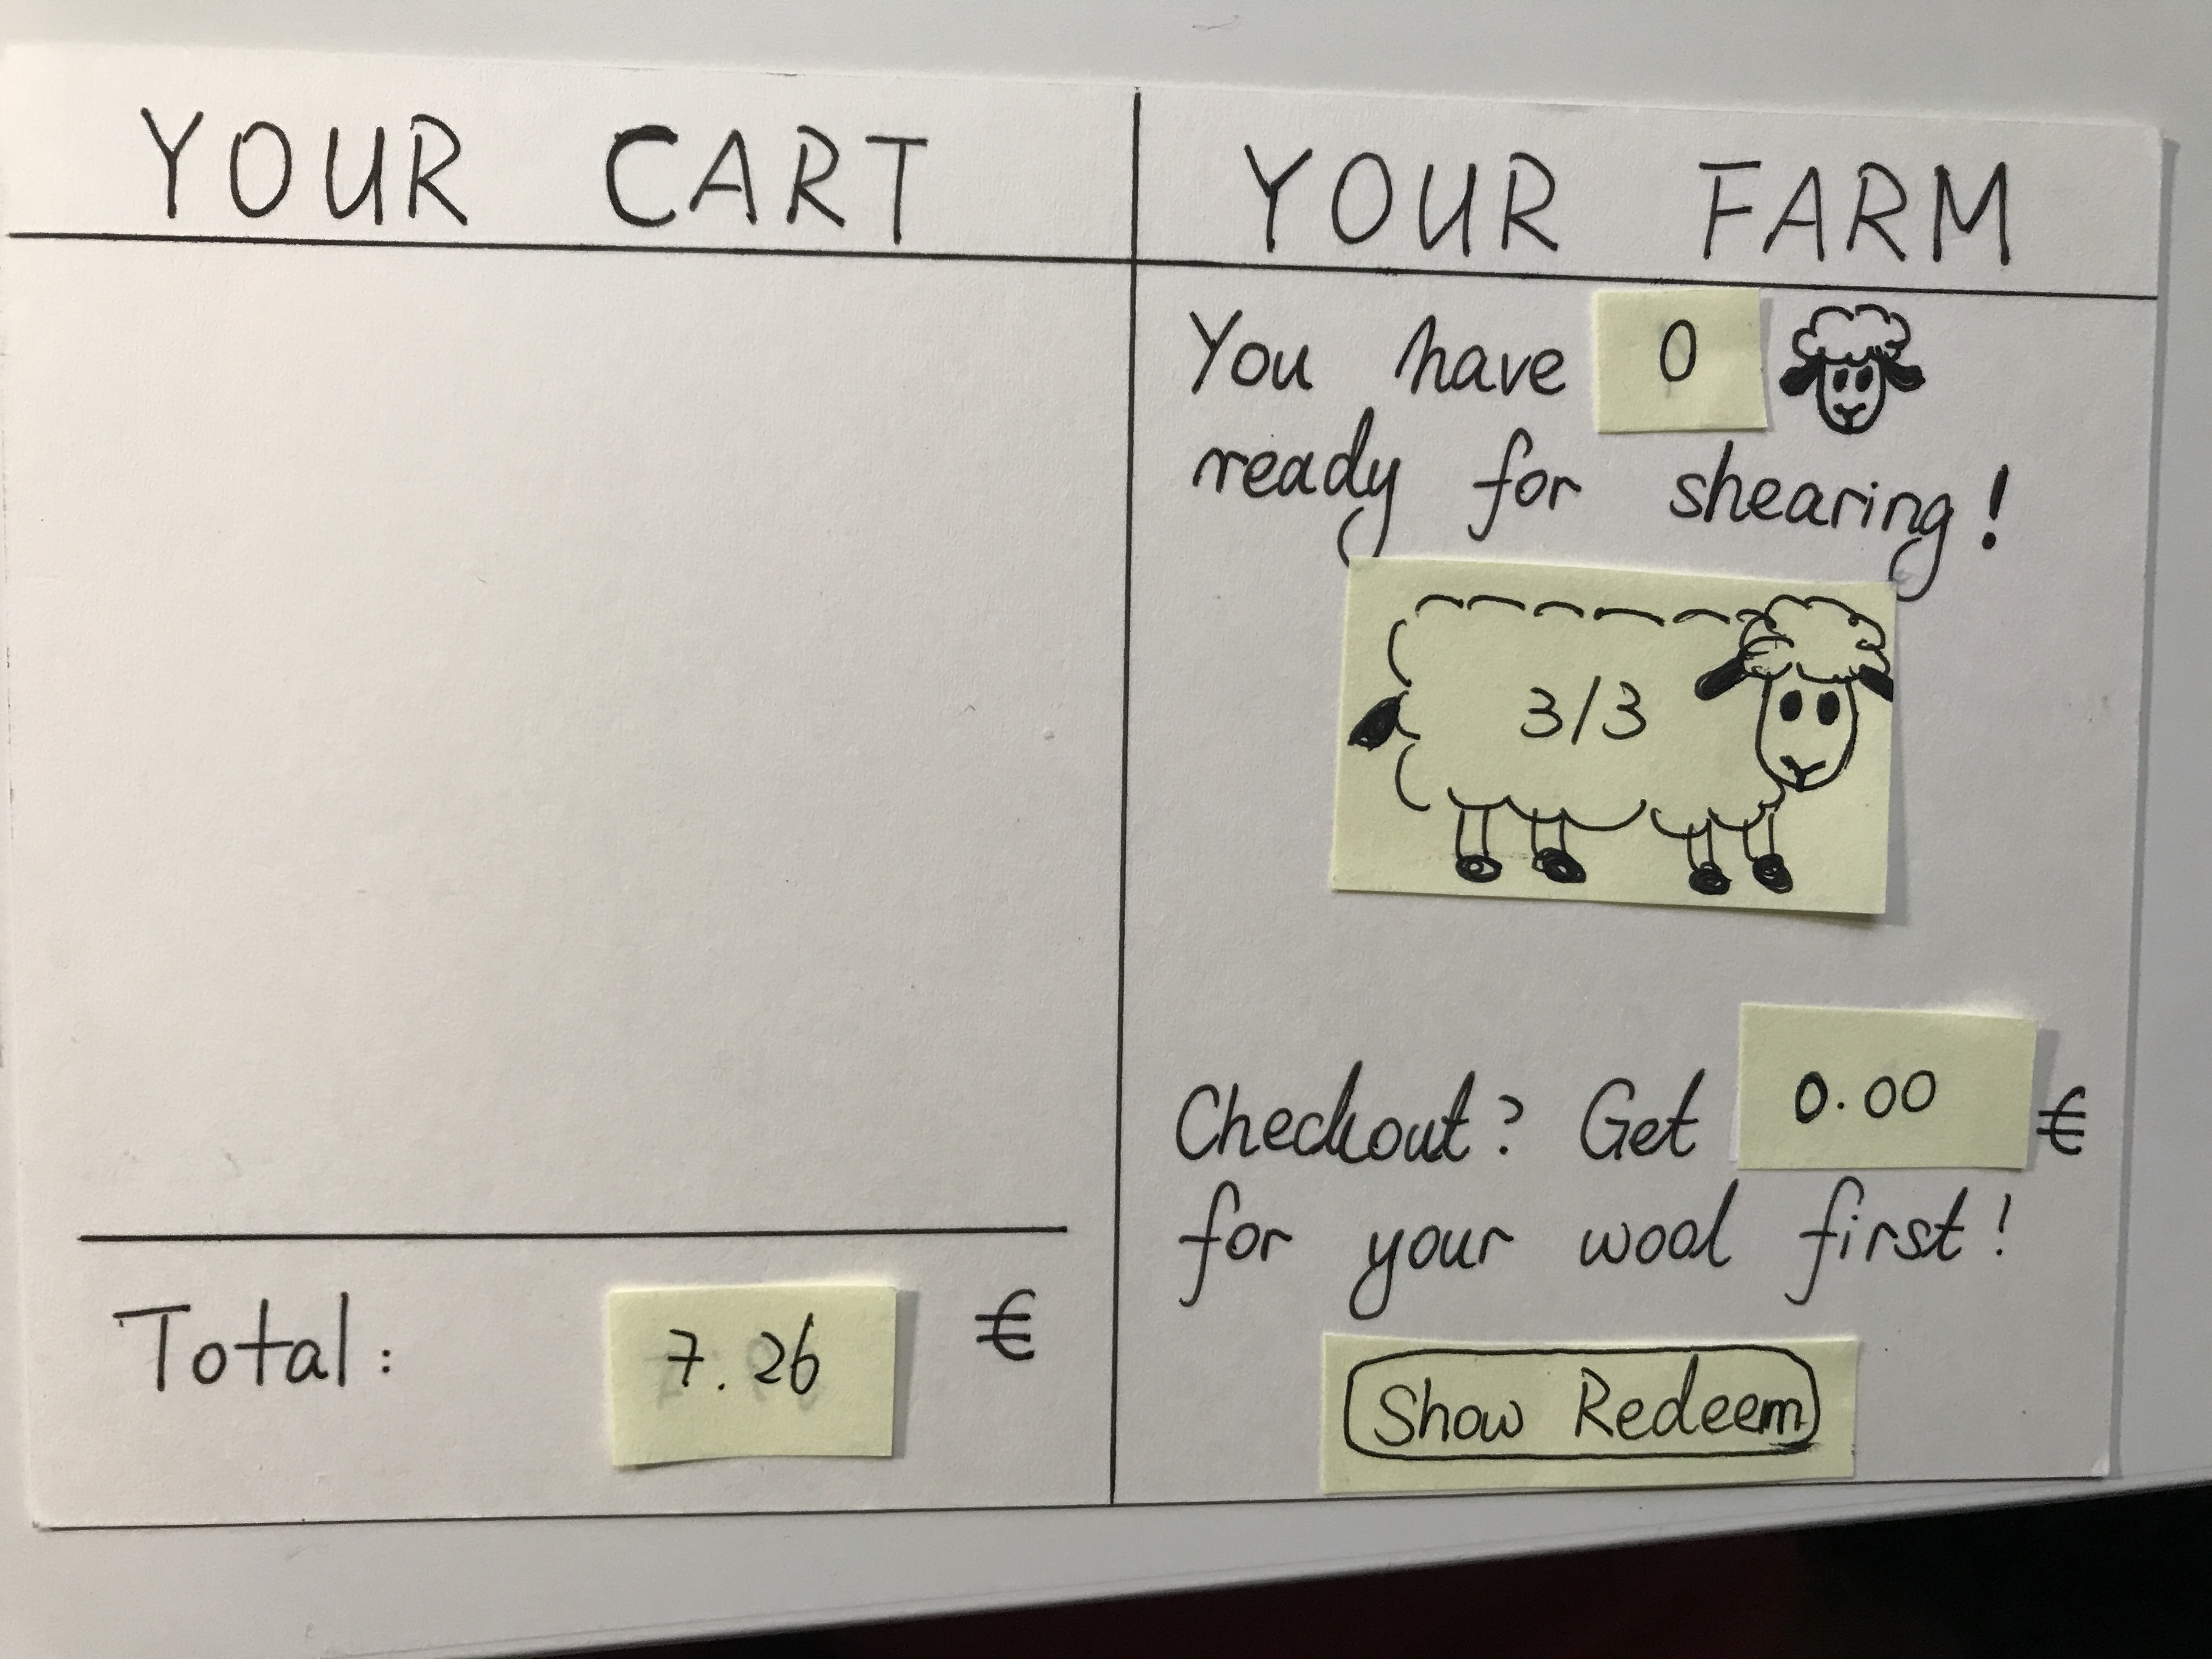 YOUR CART
Total: 7.26 €
YOUR FARM
You have 0
ready for shearing!
3/3
Checkout? Get 0.00 €
for your wool first!
Show Redeem